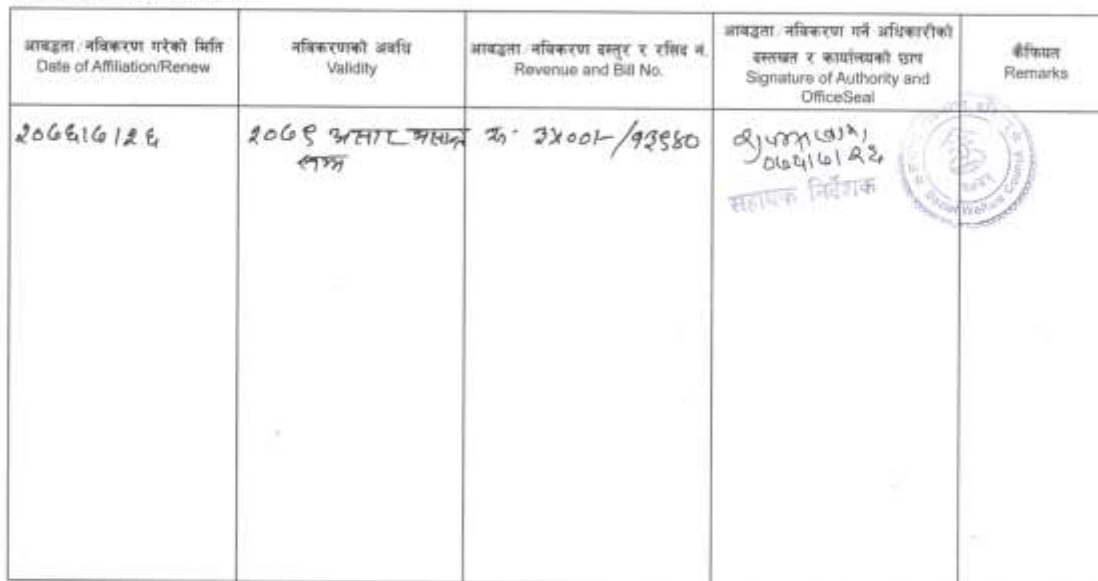 आवद्धता/नविकरण गरेको मिति
Date of Affiliation/Renew
नविकरणको अवधि
Validity
आवद्धता/नविकरण दस्तुर र रसिद नं.
Revenue and Bill No.
आवद्धता/नविकरण गर्ने अधिकारीको
दस्तखत र कार्यालयको छाप
Signature of Authority and
OfficeSeal
कैफियत
Remarks
२०७६।७।२६
२०७९ असार मसान्त
सम्म
रु. ३५००।-/१३९४०
०७६।७।२६
सहायक निर्देशक
Social Welfare Council